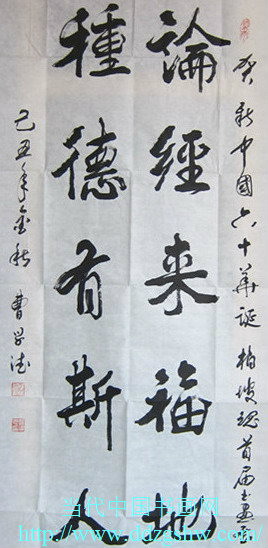 贺新中國六十華誕 柏坡魂首届书画
論經来福地
種德有斯人
己丑年金秋 曹
当代中国书画网
http://www.ddzgshw.com/